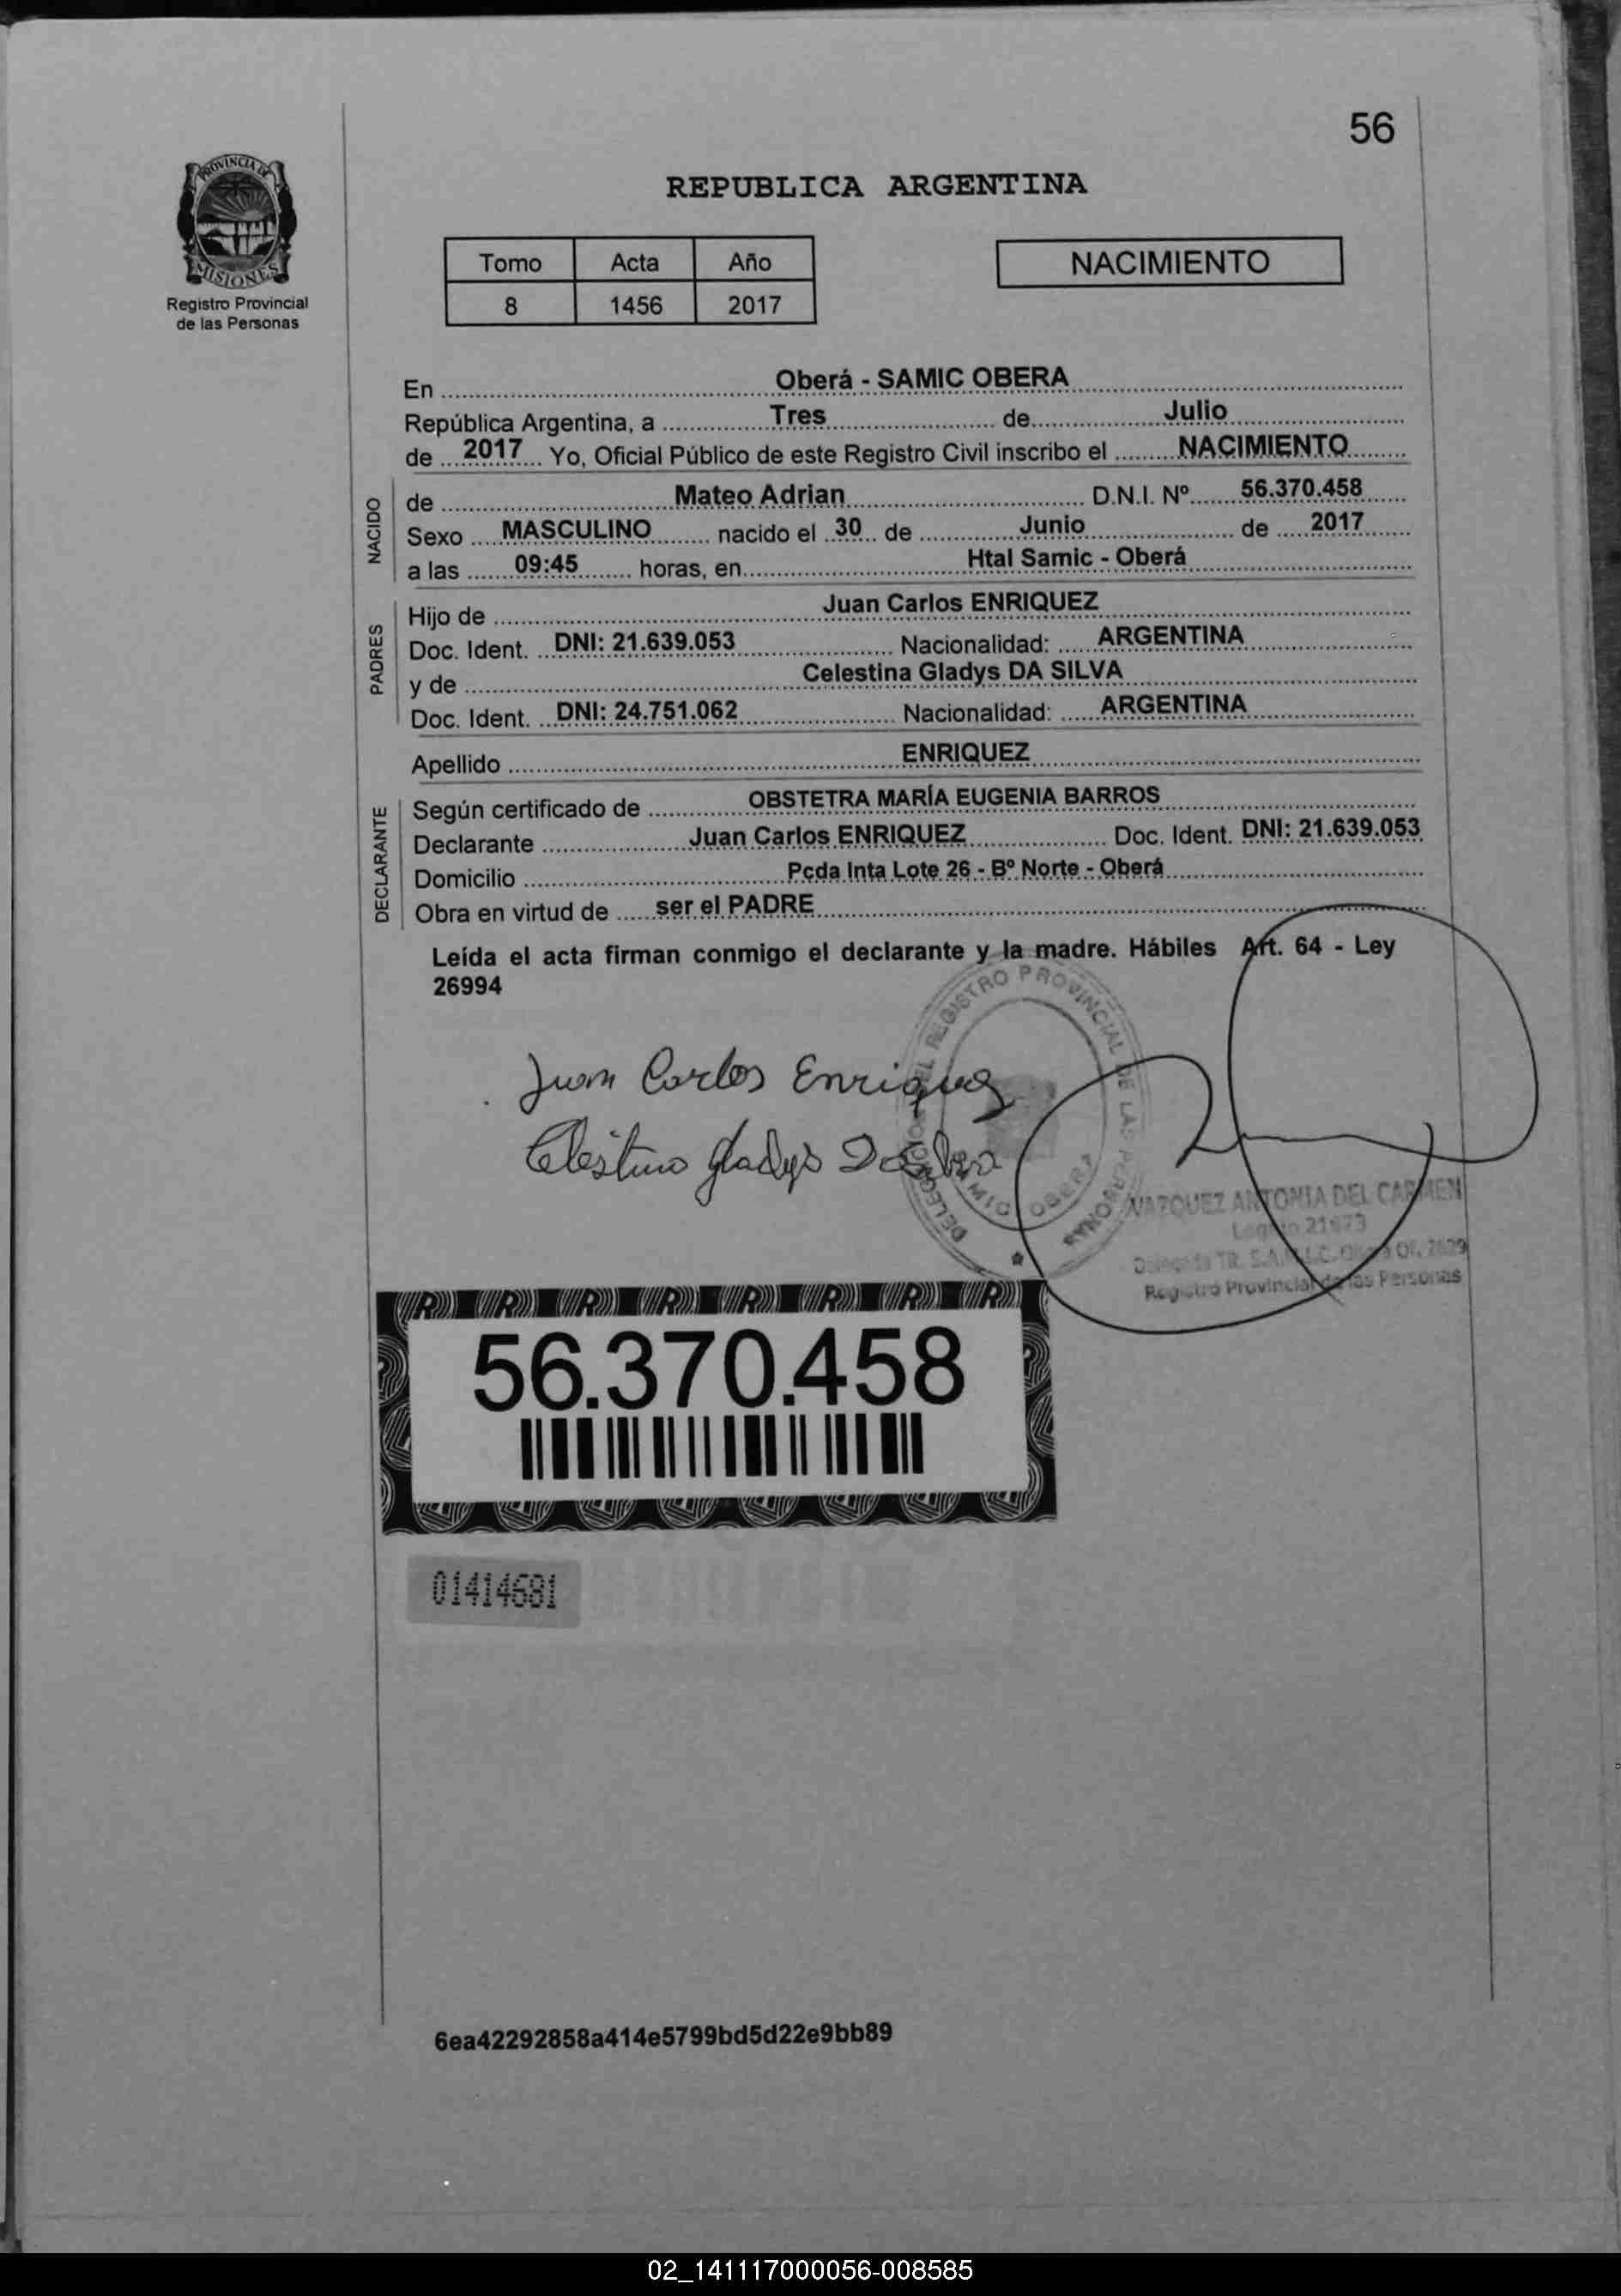 56
PROVINCIA DE
MISIONES
Registro Provincial
de las Personas
REPUBLICA ARGENTINA
Tomo Acta Año
8 1456 2017
NACIMIENTO
En Oberá - SAMIC OBERA
República Argentina, a Tres de Julio
de 2017 Yo, Oficial Público de este Registro Civil inscribo el NACIMIENTO
NACIDO
de Mateo Adrian D.N.I. Nº 56.370.458
Sexo MASCULINO nacido el 30 de Junio de 2017
a las 09:45 horas, en Htal Samic - Oberá
PADRES
Hijo de Juan Carlos ENRIQUEZ
Doc. Ident. DNI: 21.639.053 Nacionalidad: ARGENTINA
y de Celestina Gladys DA SILVA
Doc. Ident. DNI: 24.751.062 Nacionalidad: ARGENTINA
Apellido ENRIQUEZ
DECLARANTE
Según certificado de OBSTETRA MARÍA EUGENIA BARROS
Declarante Juan Carlos ENRIQUEZ Doc. Ident. DNI: 21.639.053
Domicilio Pcda Inta Lote 26 - Bº Norte - Oberá
Obra en virtud de ser el PADRE
Leída el acta firman conmigo el declarante y la madre. Hábiles Art. 64 - Ley
26994
REGISTRO PROVINCIAL DE LAS PERSONAS
OBERA
Juan Carlos Enriquez
Gladys
VAZQUEZ ANTONIA DEL CARMEN
Registro Provincial de las Personas
56.370.458
01414681
6ea42292858a414e5799bd5d22e9bb89
02_141117000056-008585